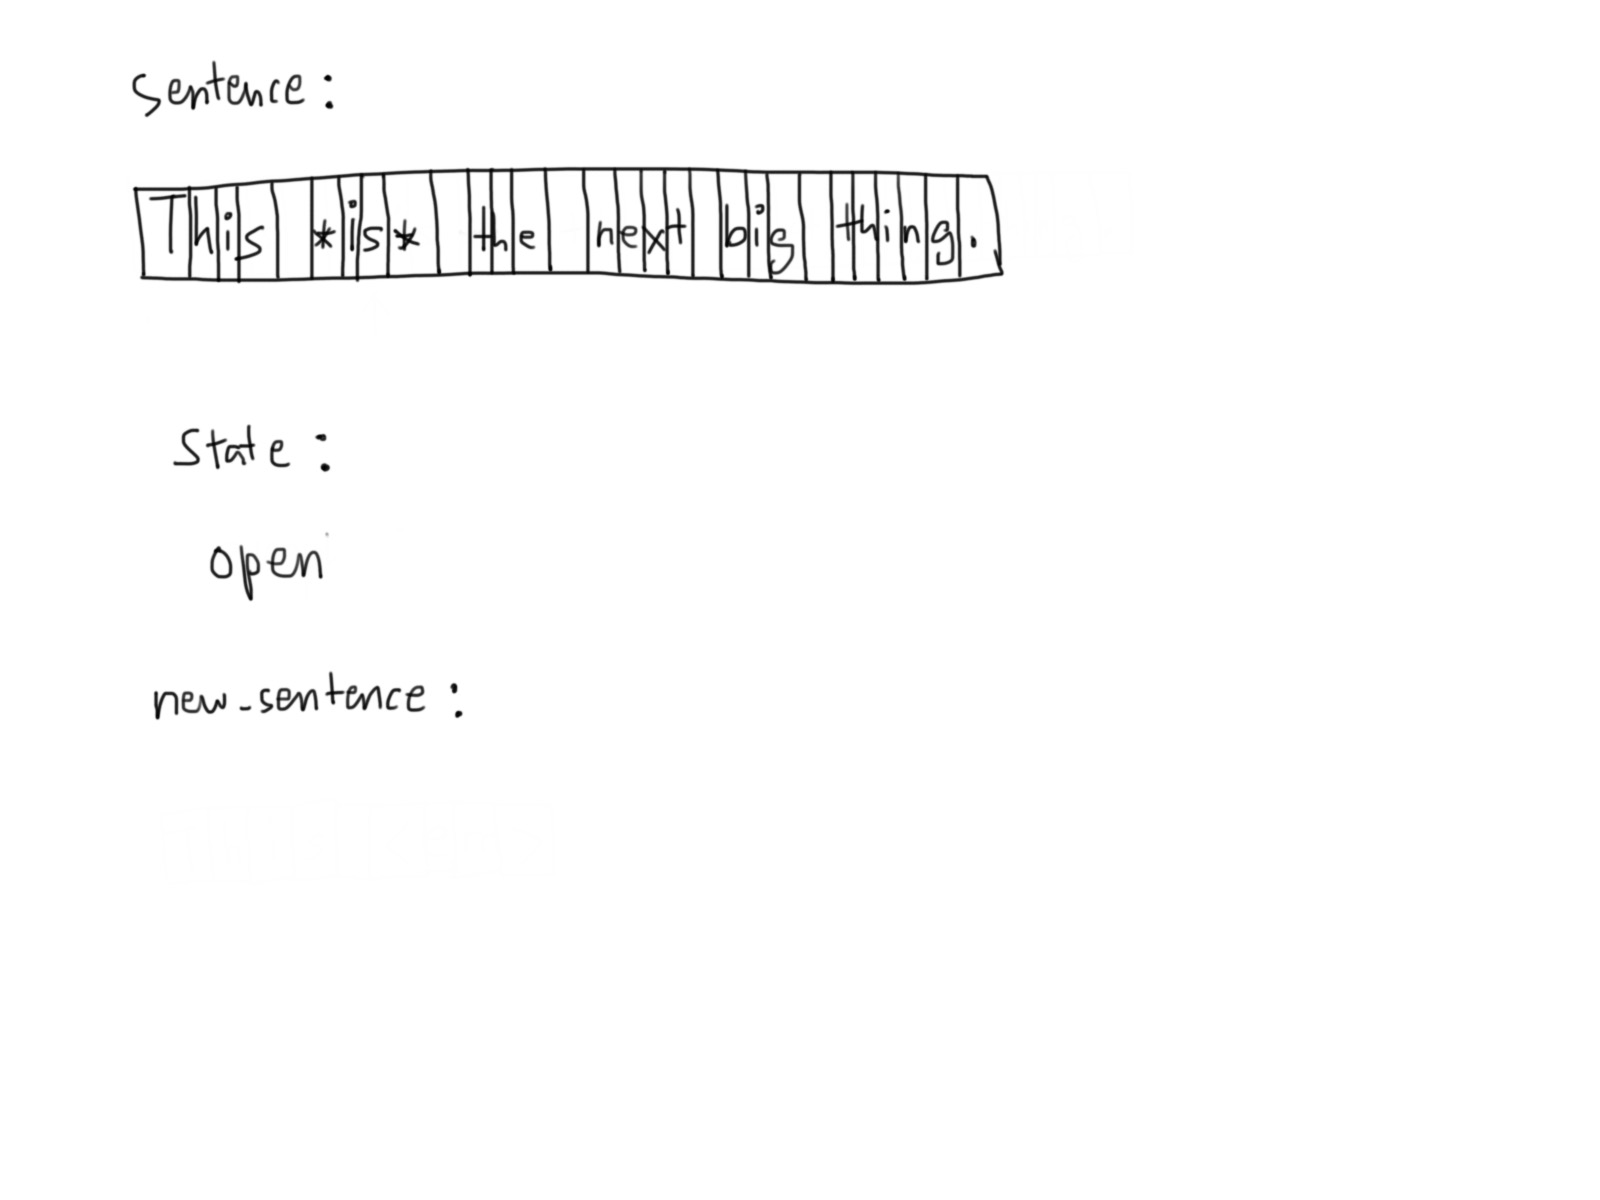 sentence:
This *is* the next big thing.
state:
open
new_sentence: